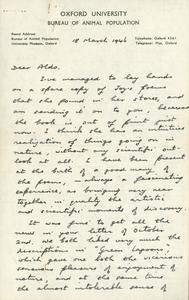 OXFORD UNIVERSITY
BUREAU OF ANIMAL POPULATION
Postal Address:
Bureau of Animal Population
University Museum, Oxford
Telephone: Oxford 4561
Telegrams: Plex, Oxford
18 March 1946
Dear Aldo,
I've managed to lay hands
on a spare copy of Joy's poems
that she found in her stores, and
am sending it on to you, because
the book is out of print just
now. I think she has an intuitive
realization of things going on in
nature, without any scientific out-
look at all. I have been present
at the birth of a good many of
the poems, always a fascinating
experience, as bringing very near
together in quality the artistic
and scientific moments of discovery.
It was fine to get all the
news in your letter of October
2nd. We both liked very much the
descriptions in "Green Lagoons"
which gave one both the vicarious
sensuous pleasure of enjoyment of
nature, and at the same time
the almost intolerable sense of